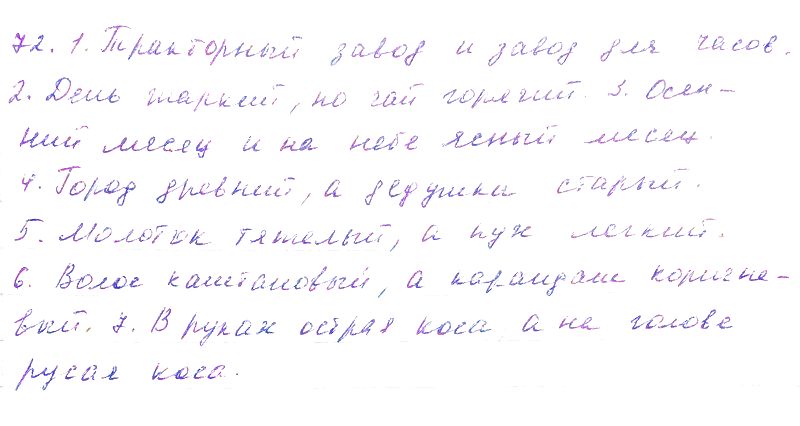 72. 1. Тракторный завод и завод для часов.
2. День жаркий, но чай горячий. 3. Осен-
ний месяц и на небе ясный месяц.
4. Город древний, а дедушка старый.
5. Молоток тяжелый, а пух легкий.
6. Волос каштановый, а карандаш коричне-
вый. 7. В руках острая коса а на голове
русая коса.